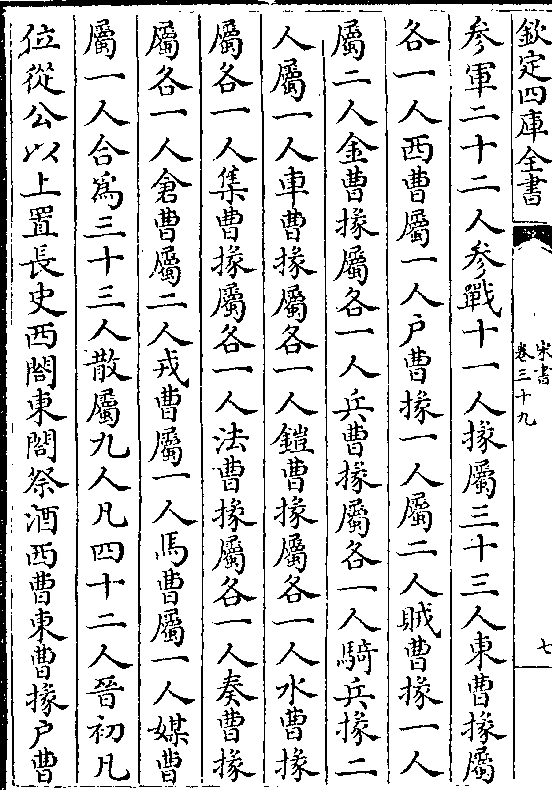 欽定四庫全書
宋書
卷三十九
七
參軍二十二人參戰十一人掾屬三十三人東曹掾屬
各一人西曹屬一人户曹掾一人屬二人賊曹掾一人
屬二人金曹掾屬各一人兵曹掾屬各一人騎兵掾二
人屬一人車曹掾屬各一人鎧曹掾屬各一人水曹掾
屬各一人集曹掾屬各一人法曹掾屬各一人奏曹掾
屬各一人倉曹屬二人戎曹屬一人馬曹屬一人媒曹
屬一人合爲三十三人散屬九人凡四十二人晉初凡
位從公以上置長史西閤東閤祭酒西曹東曹掾户曹